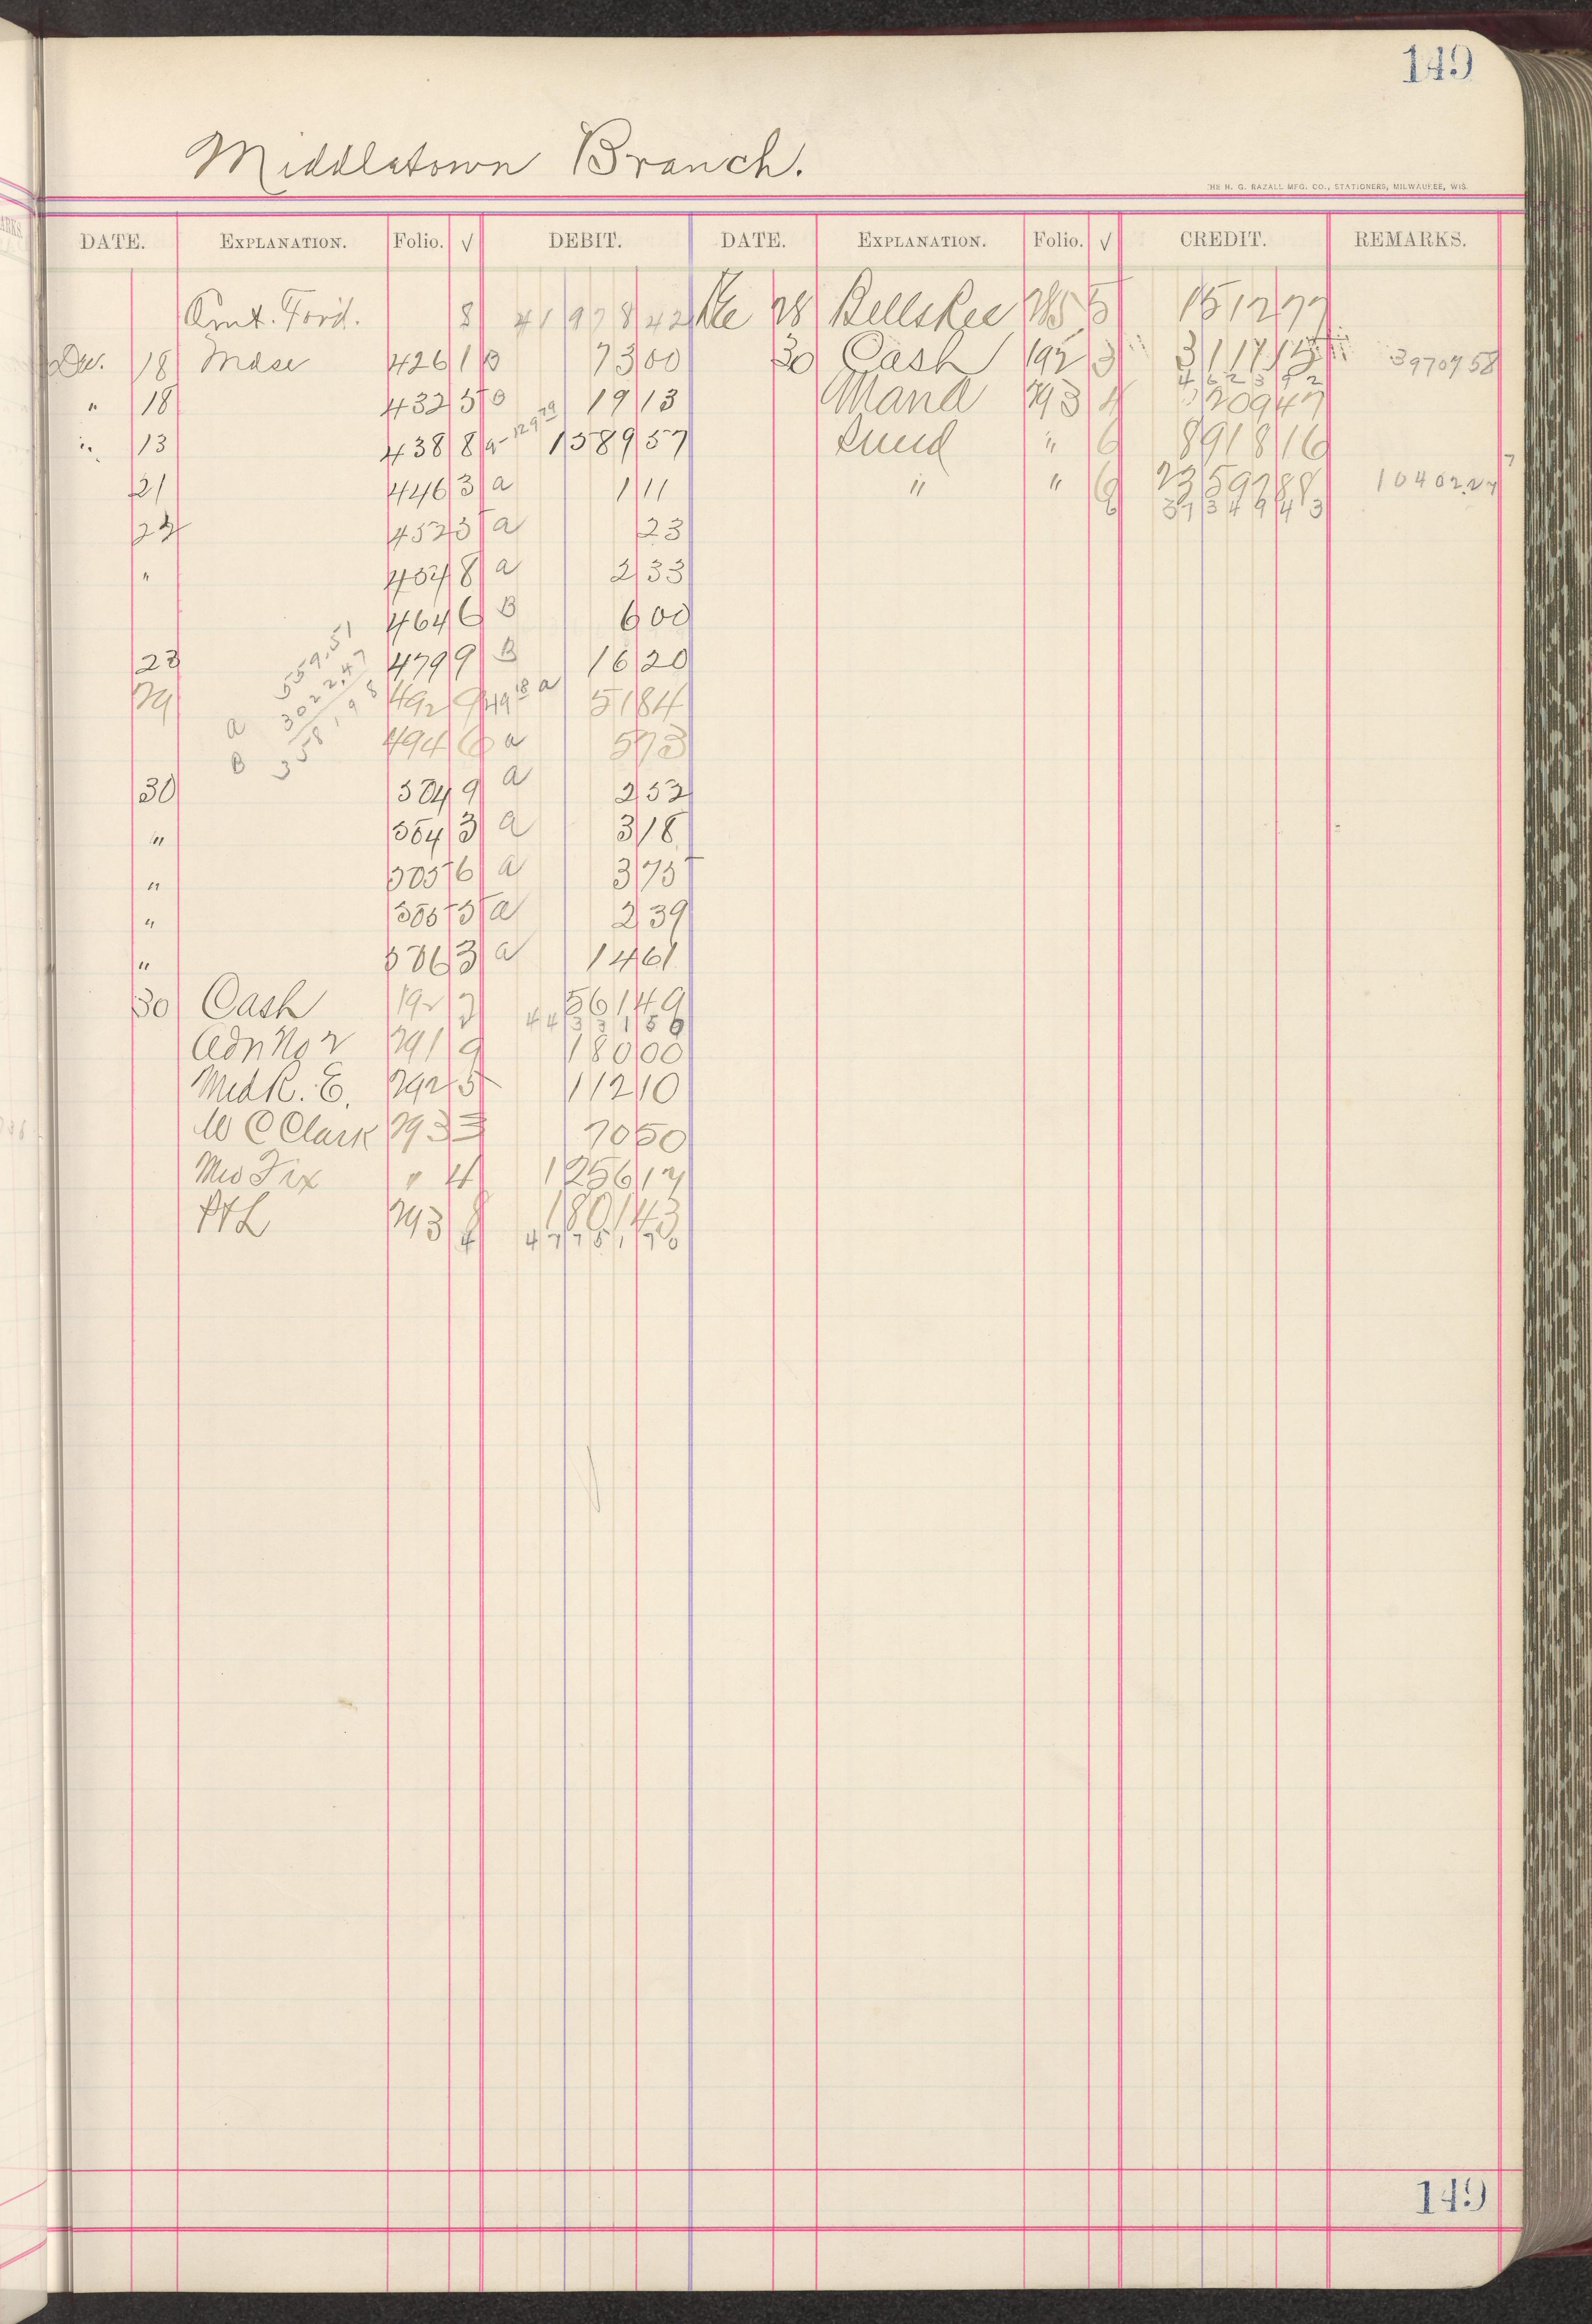 149
Middletown Branch.
THE H. G. RAZALL MFG. CO., STATIONERS, MILWAUKEE, WIS.
DATE. EXPLANATION. Folio. √ DEBIT. DATE. EXPLANATION. Folio. √ CREDIT. REMARKS.
Amt. Ford. 8 41 978 42 28 285 5 1512 77
Dec. 18 Mdse 426 1 B 73 00 30 Cash 192 3 3970758
4623 92
" 18 432 5 B 19 13 Mand 293 4 209 47
" 13 438 8 a 1299 79 1589 57 Sund " 6 8918 16
21 446 3 a 1 11 " " 6 23592 88 10402.27
37349 43
22 452 5 a 23
" 454 8 a 2 33
464 6 B 6 00
23 479 9 B 16 20
559.51
29 492 9 49 18 a 51 84
a 3022.47
494 6 a 5 73
B 358198
30 504 9 a 2 52
" 504 3 a 3 18
" 505 6 a 3 75
" 505 5 a 2 39
" 506 3 a 14 61
30 Cash 192 3 561 49
44331 56
Adn No 2 291 9 180 00
Med R. E. 292 5 112 10
W C Clark 293 3 70 50
Fix " 4 1256 17
P&L 293 8 1801 43
4 47751 76
149